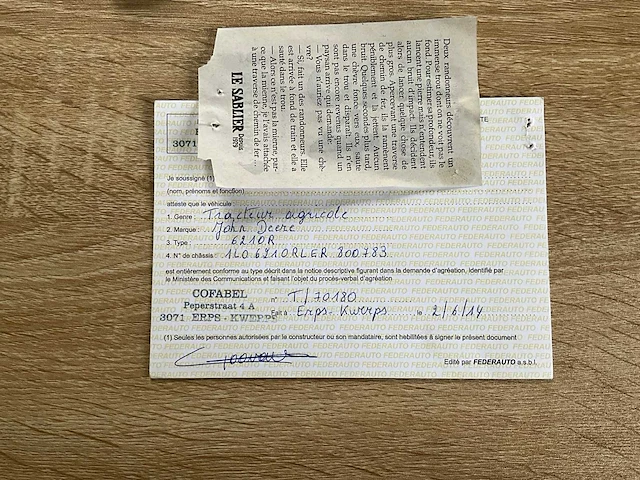 Deux randonneurs découvrent un
immense trou dont on ne voit pas le
fond. Pour estimer sa profondeur, ils
lancent une pierre mais n'entendent
aucun bruit d'impact. Ils décident
alors de lancer quelque chose de
plus gros. Apercevant une traverse
de chemin de fer, ils la ramènent
péniblement et la jettent. Aucun
bruit. Quelques secondes plus tard
une chèvre fonce vers eux, saute
dans le trou et disparaît. Ils n'en
sont pas encore revenus quand un
paysan arrive qui demande:
— Vous n'auriez pas vu une chè-
vre?
— Si, fait un des randonneurs. Elle
est arrivée à fond de train et elle a
sauté dans le trou.
— Alors ce n'est pas la mienne, par-
ce que la mienne, je l'avais attachée
à une traverse de chemin de fer...
LE SABLIER Depuis
1979
3071
Je soussigné (1)
(nom, prénoms et fonction)
atteste que le véhicule :
1. Genre : Tracteur agricole
2. Marque : John Deere
3. Type : 6210R
4. N° de châssis : 1L06210RLER 800783
est entièrement conforme au type décrit dans la notice descriptive figurant dans la demande d'agréation, identifié par
le Ministère des Communications et faisant l'objet du procès-verbal d'agréation
COFABEL
n° T/70180
Peperstraat 4 A
3071 ERPS - KWERPS
Fait à Erps-Kwerps, le 2/6/14
(1) Seules les personnes autorisées par le constructeur ou son mandataire, sont habilitées à signer le présent document
Edité par FEDERAUTO a.s.b.l.